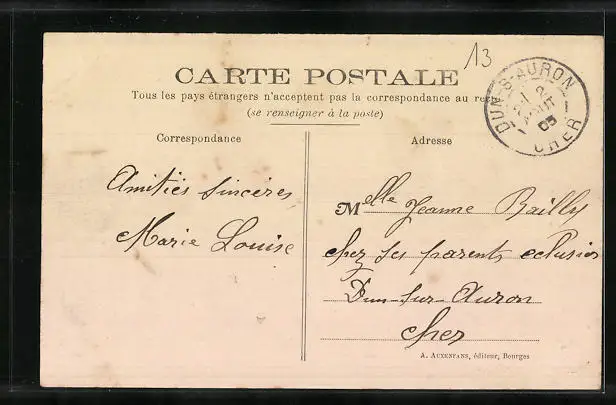 13
CARTE POSTALE
Tous les pays étrangers n'acceptent pas la correspondance au rec
(se renseigner à la poste)
DUN-S-AURON
CHER
AOUT
05
Correspondance
Adresse
Amitiés sincères
Marie Louise
Melle Jeanne Bailly
chez ses parents eclusier
Dun-sur-Auron
Cher
A. AUXENFANS, éditeur, Bourges